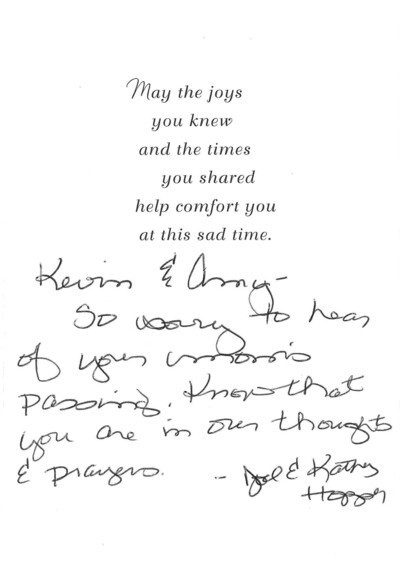 May the joys
you knew
and the times
you shared
help comfort you
at this sad time.
Kevin & Amy-
So sorry to hear
of your mom's
passing. Know that
you are in our thoughts
& prayers. - Joel & Kathy